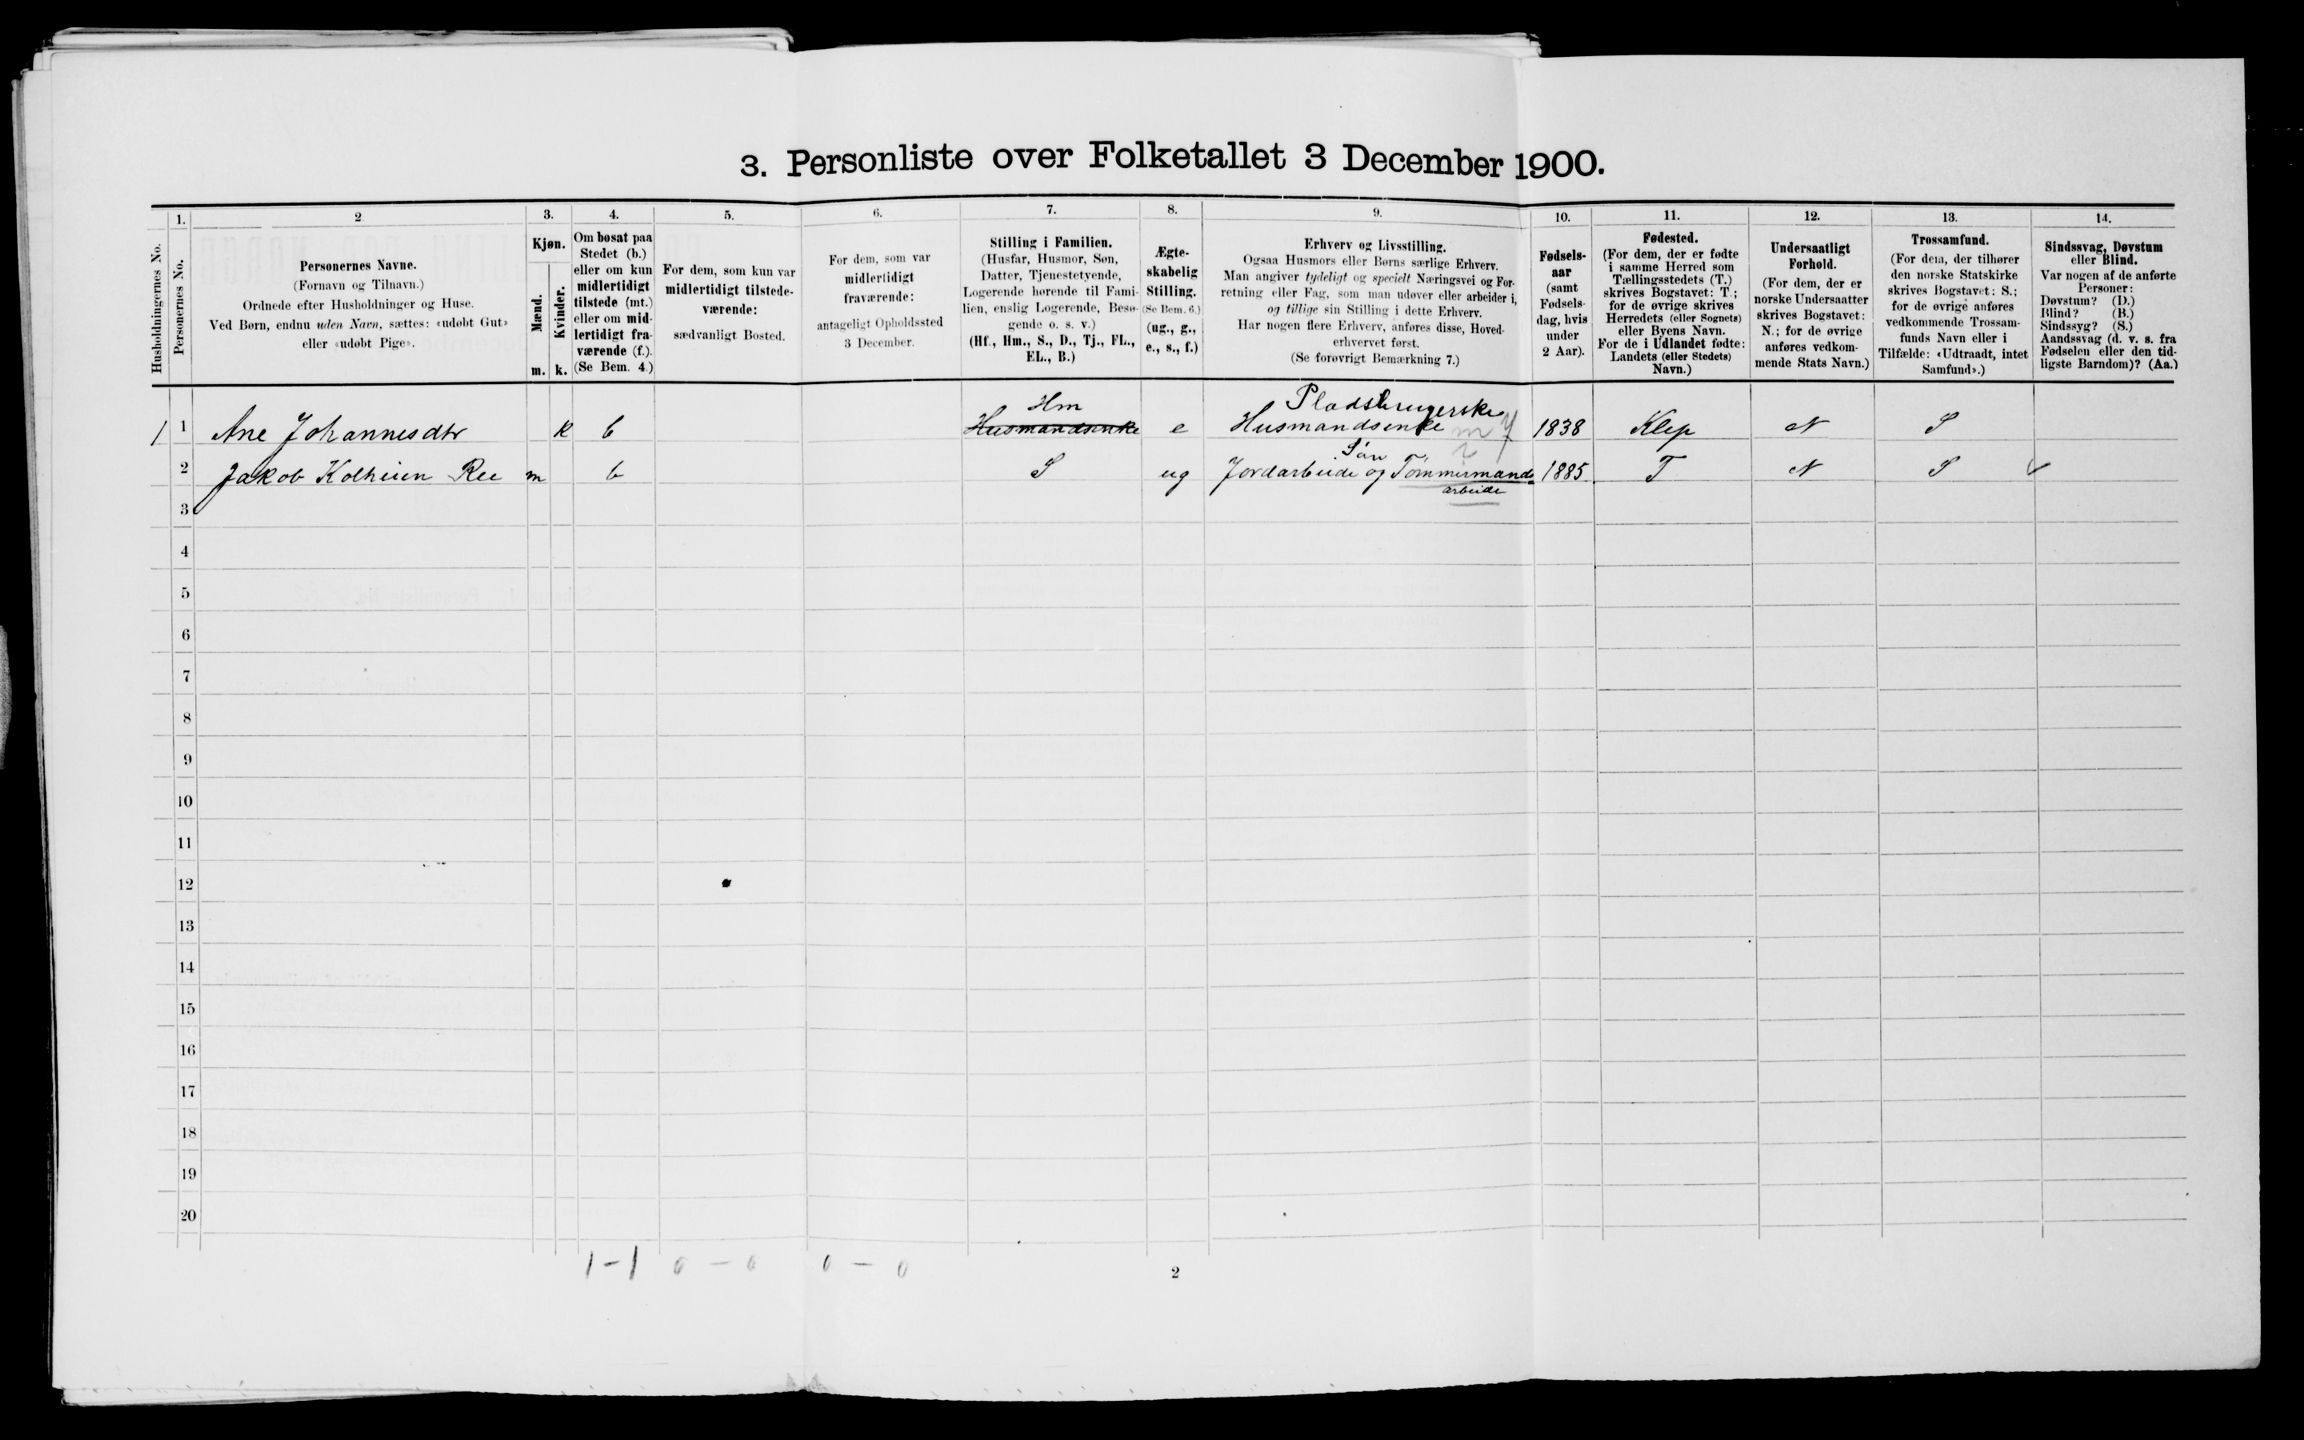 3. Personliste over Folketallet 3 December 1900.
Husholdningernes No.
1.
Personernes No.
2
Personernes Navne.
(Fornavn og Tilnavn.)
Ordnede efter Husholdninger og Huse.
Ved Børn, endnu uden Navn, sættes: «udøbt Gut»
eller «udøbt Pige».
3.
Kjøn.
Mænd.
Kvinder.
m. k.
4.
Om bosat paa
Stedet (b.)
eller om kun
midlertidigt
tilstede (mt.)
eller om mid-
lertidigt fra-
værende (f.).
(Se Bem. 4.)
5.
For dem, som kun var
midlertidigt tilstede-
værende:
sædvanligt Bosted.
6.
For dem, som var
midlertidigt
fraværende:
antageligt Opholdssted
3 December.
7.
Stilling i Familien.
(Husfar, Husmor, Søn,
Datter, Tjenestetyende,
Logerende hørende til Fami-
lien, enslig Logerende, Besø-
gende o. s. v.)
(Hf., Hm., S., D., Tj., FL.,
EL., B.)
8.
Ægte-
skabelig
Stilling.
(Se Bem. 6.)
(ug., g.,
e., s., f.)
9.
Erhverv og Livsstilling.
Ogsaa Husmors eller Børns særlige Erhverv.
Man angiver tydeligt og specielt Næringsvei og For-
retning eller Fag, som man udøver eller arbeider i,
og tillige sin Stilling i dette Erhverv.
Har nogen flere Erhverv, anføres disse, Hoved-
erhvervet først.
(Se forøvrigt Bemærkning 7.)
10.
Fødsels-
aar
(samt
Fødsels-
dag, hvis
under
2 Aar).
11.
Fødested.
(For dem, der er fødte
i samme Herred som
Tællingsstedets (T.)
skrives Bogstavet: T.;
for de øvrige skrives
Herredets (eller Sognets)
eller Byens Navn.
For de i Udlandet fødte:
Landets (eller Stedets)
Navn.)
12.
Undersaatligt
Forhold.
(For dem, der er
norske Undersaatter
skrives Bogstavet:
N.; for de øvrige
anføres vedkom-
mende Stats Navn.)
13.
Trossamfund.
(For dem, der tilhører
den norske Statskirke
skrives Bogstavet: S.;
for de øvrige anføres
vedkommende Trossam-
funds Navn eller i
Tilfælde: «Udtraadt, intet
Samfund».)
14.
Sindssvag, Døvstum
eller Blind.
Var nogen af de anførte
Personer:
Døvstum? (D.)
Blind? (B.)
Sindssyg? (S.)
Aandssvag (d. v. s. fra
Fødselen eller den tid-
ligste Barndom)? (Aa.)
Hm Pladsbrugerske
1 1 Ane Johannesdtr k b Husmandsenke e Husmandsenke 1838 Klep N S
Søn
2 Jakob Kolheien Ree m b S ug Jordarbeide og Tømmermands 1885 T N S
arbeide
3
4
5
6
7
8
9
10
11
12
13
14
15
16
17
18
19
20
1 - 1 0 - 0 0 - 0
2